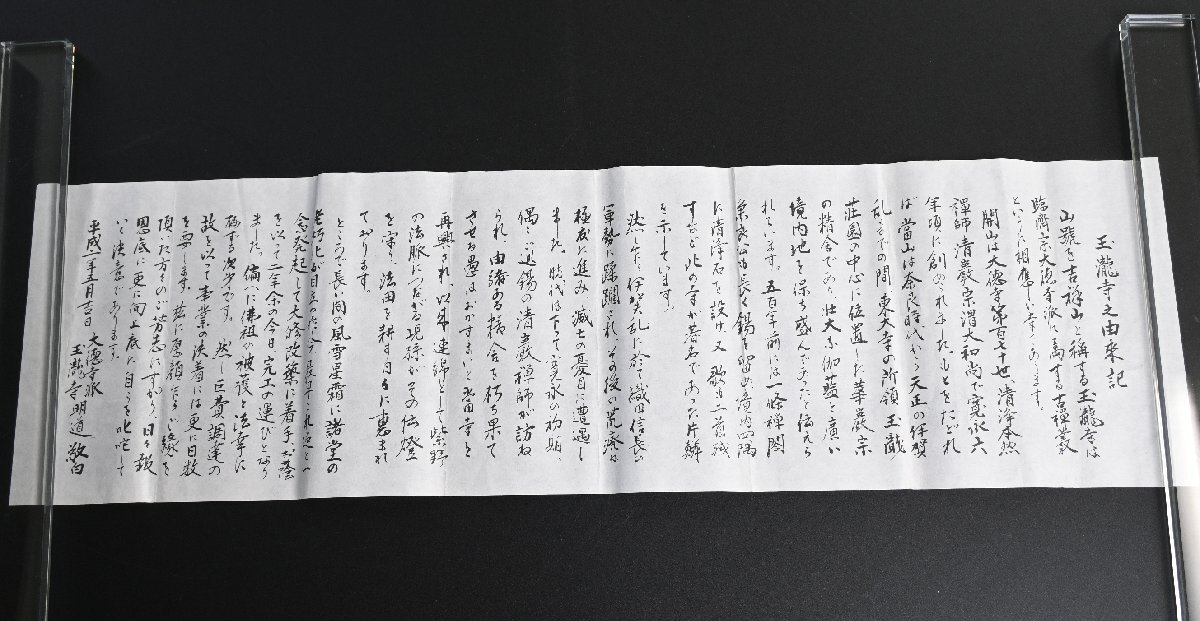 玉瀧寺之由来記
山號を吉祥山と称する玉瀧寺は
臨済宗大徳寺派に属する古禅叢
というに相應しい寺であります。
開山は大徳寺第百七十世清浄本然
禅師清巌宗渭大和尚で寛永六
年頃に創められましたがもとをたどれ
ば當山は奈良時代から天正の伊賀
乱までの間東大寺の所領玉瀧
荘園の中心に位置した華厳宗
の精舎であり、壮大な伽藍と廣い
境内地を保ち盛んであったと伝えら
れています。五百年前には一條禅閤
兼良公も長く錫を留め境内四隅
に清浄石を設け、又歌を二首残
すなど此の寺が著名であった片鱗
を示しています。
然し伊賀乱に於て織田信長の
軍勢に蹂躙され、その後の荒廃は
極度に進み滅亡の憂目に遭遇し
ました。時代は下って寛永の初期、
偶々巡錫の清巌禅師が訪ね
られ、由緒ある精舎を朽ち果て
させる愚はおかすまいと当寺を
再興され、以来連綿として紫野
の法脈につながる児孫がその伝燈
を守り、法田を耕す日々に恵まれ
ております。
ところで長い間の風雪星霜に諸堂の
老朽化が目立った
念発起して大修改築に着手
を以って二年余の今日完工の運びとなり
ました。偏へに佛祖の被護 法幸に
極する次第です。然し巨費調達の
故を以って事業の決着には更に日数
を要します。茲に懇願たるご縁を
頂いた方々のご芳志にすがり、日々報
恩底に更に向上底に自らを叱咤して
いく決意であります。
平成二年五月吉日 大徳寺派
玉瀧寺明道敬白